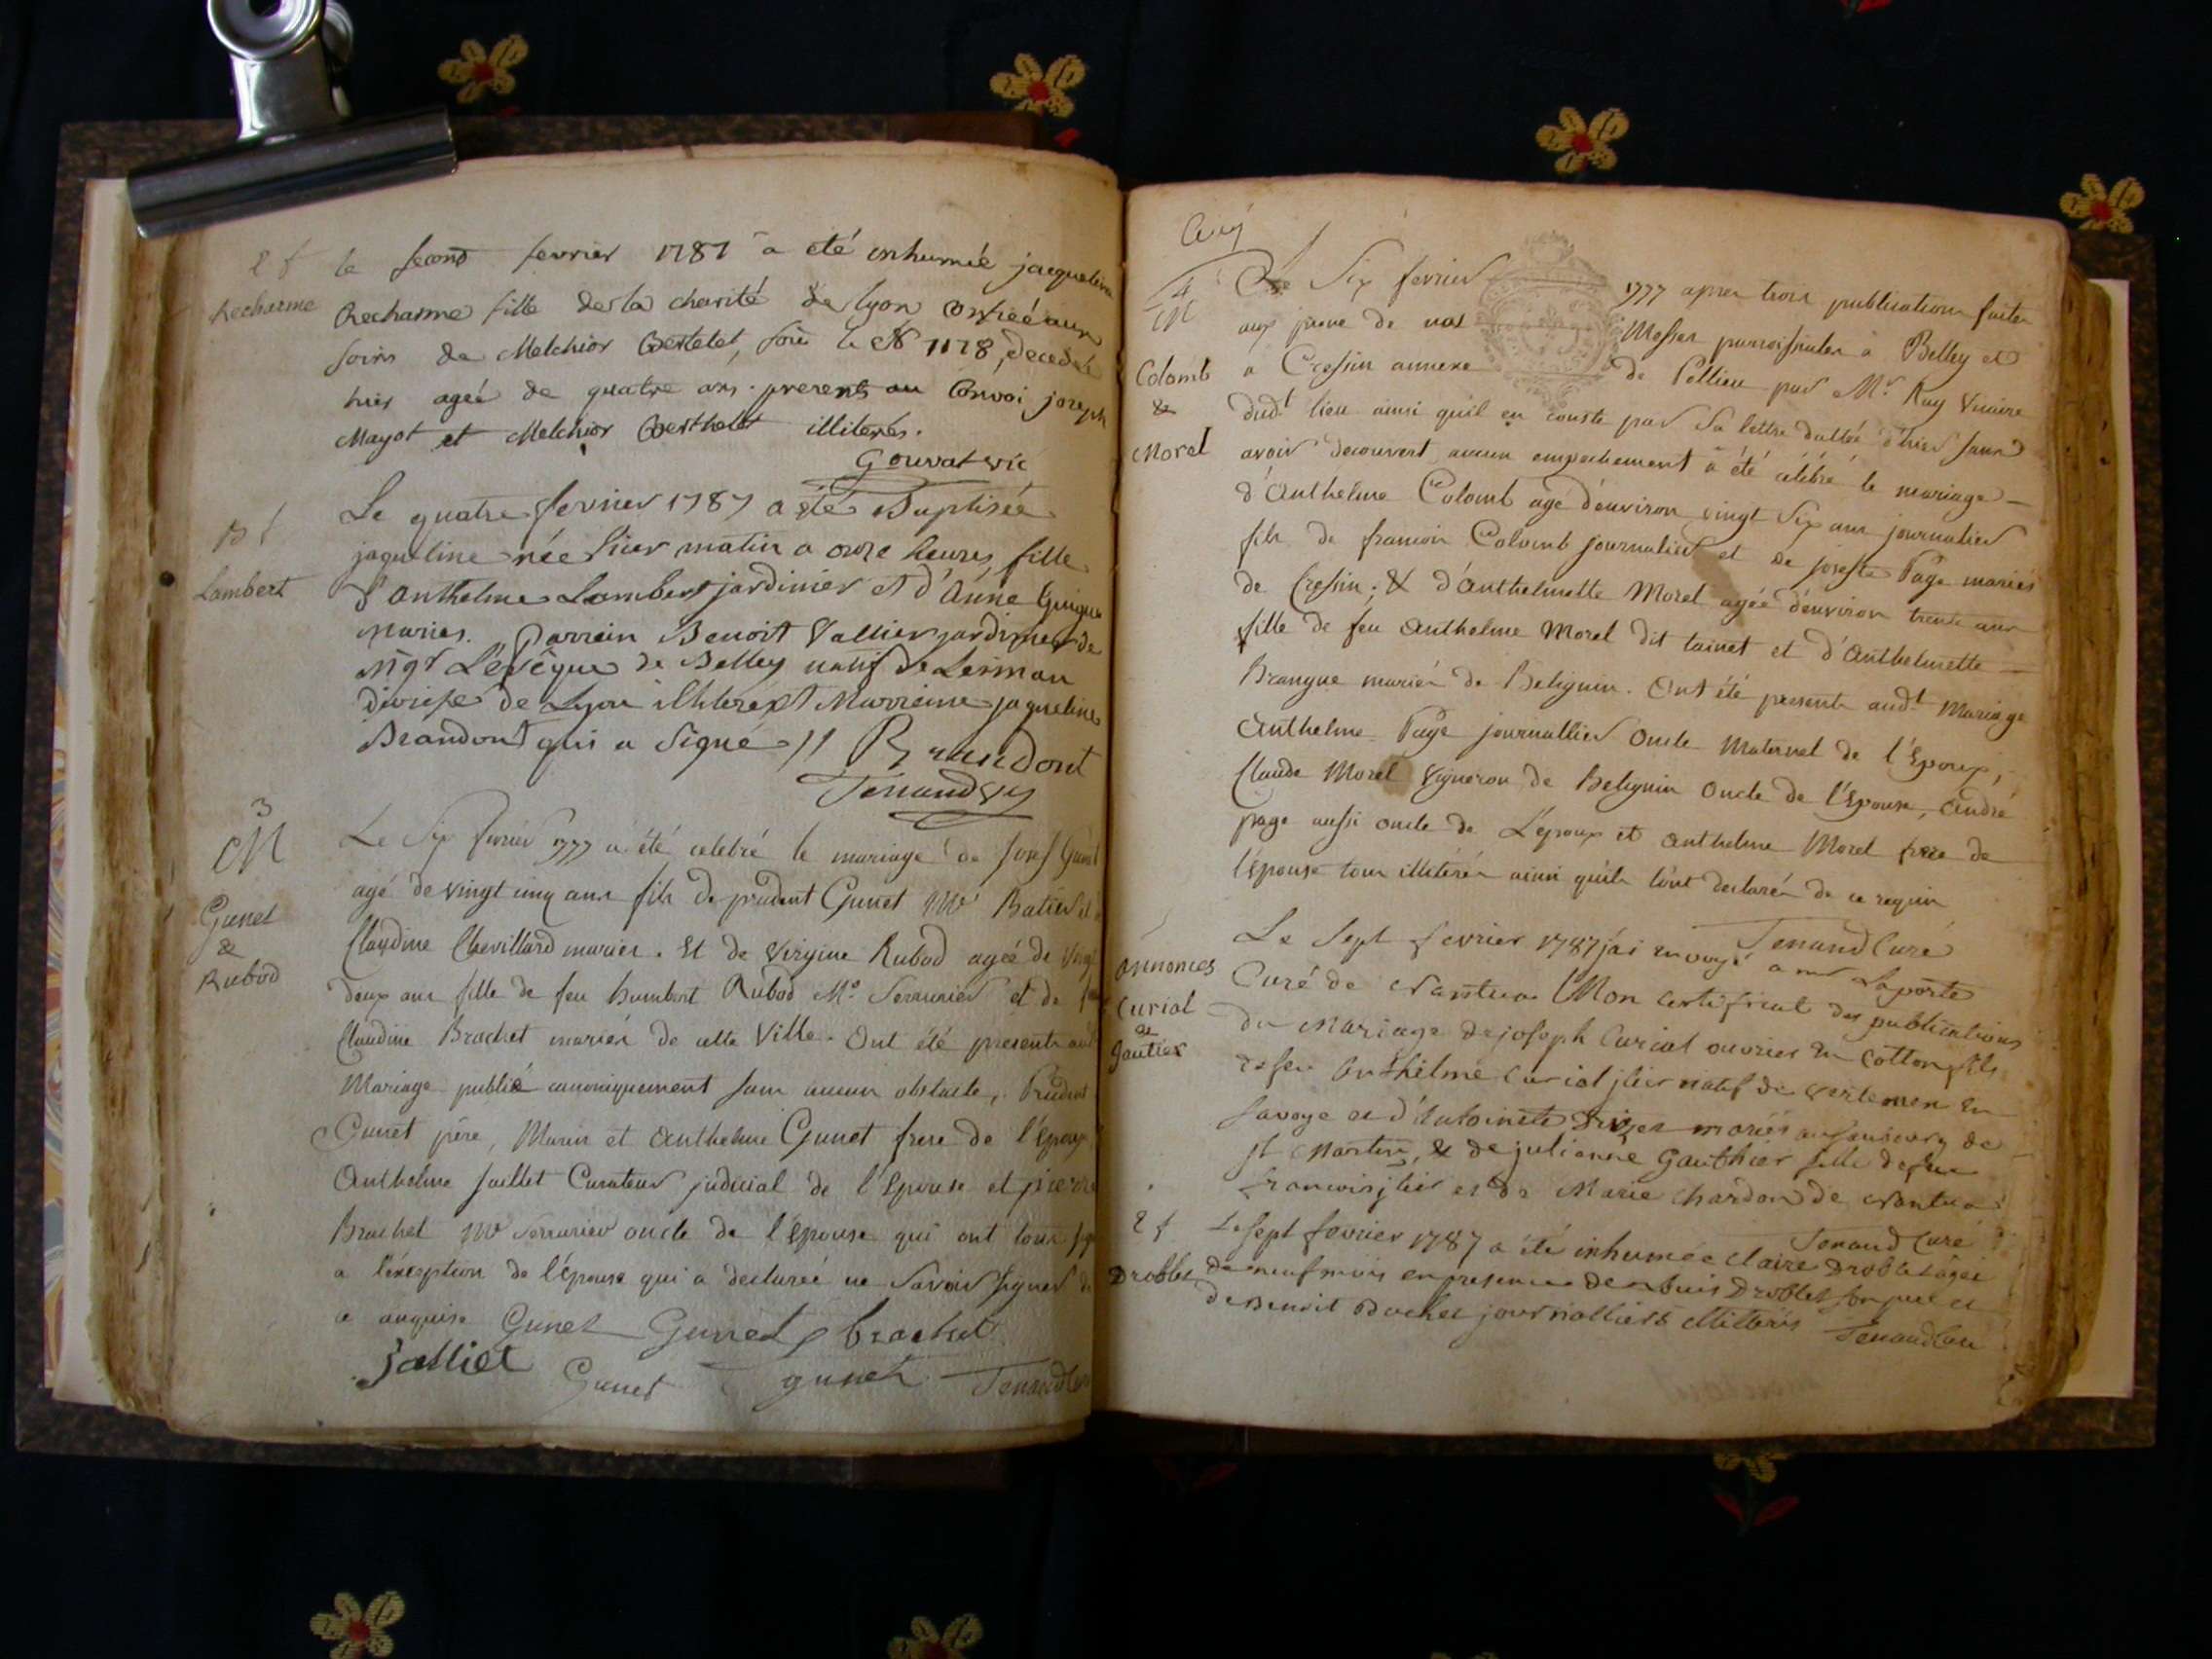 2 f
Recharme
le second fevrier 1787 a été inhumée jacqueline
Recharme fille de la charité de lyon confiée aux
soins de Melchior Bertelet, sous le N 1178, decedée
hier agée de quatre ans. presents au Convoi joseph
Mayot et Melchior Berthelet illiterés.
Gouvat vic
B f
Lambert
Le quatre fevrier 1787 a été Baptisée
jaqueline née hier matin a onze heures, fille
d'Anthelme Lambert jardinier et d'Anne Guigue
Mariés. Parrein Benoit Vallier jardinier de
Mgr L'evêque de Belley natif de
diocese de Lyon illiteré et Marreine jaqueline
Brandont qui a signé //
Brandont
Tenand
3
M
Gunet
&
Rubod
Le Six fevrier 1777 a été celebré le mariage de Josef Gunet
agé de vingt cinq ans fils de prudent Gunet Me Batier et
Claudine Chevillard mariés. Et de Virgine Rubod agée de Vingt
deux ans fille de feu humbert Rubod Me Serrurier et de
Claudine Brachet mariés de cette Ville. Ont été presents aud
Mariage publié canoniquement sans aucun obstacle, Prudent
Gunet père, Marin et Anthelme Gunet frere de l'Epoux
Anthelme Juillet Curateur judicial de l'Epouse et pierre
Brachet Me Serrurier oncle de l'Epouse qui ont tous
a l'éxception de l'épouse qui a declareé ne Savoir signer de
a enquise
Gunet Gunet brachet
Jalliet Gunet gunet Tenand Cu
4
M
Colomb
&
Morel
Le Six fevrier 1777 apres trois publications faites
aux prone de nos Messes parroissiales à Belley et
a Cressin annexe de Pollieu par Mr. Ruy Vicaire
dudt lieu ainsi qu'il en conste par Sa lettre dattée d'hier sans
avoir decouvert aucun empechement a été célébré le mariage
d'Anthelme Colomb agé d'environ vingt Six ans journalier
fils de francois Colomb journalier et de josefte Page mariés
de Cressin; & d'Anthelmette Morel agée d'environ trente ans
fille de feu Anthelme Morel dit tainet et d'Anthelmette
Brangue mariés de Belignin. Ont été presents audt Mariage
Anthelme Page journallier oncle Maternel de l'Epoux,
Claude Morel Vigneron de Belignin Oncle de l'Epouse, André
page aussi oncle de L'époux et Anthelme Morel frere de
l'Epouse tous illitérés ainsi qu'ils l'ont declaré de ce requis
Tenand Curé
Annonces
Curial
&
gautier
Le Sept fevrier 1787 j'ai envoyé a mr Laporte
Curé de Nantua Mon certificat des publications
du Mariage de joseph Curial ouvrier en cotton fils
de feu Anthelme Curial jlier natif de en
savoye et d'Antoinete mariés au fauxbourg de
st Martin, & de julienne Gauthier fille de feu
francois jlier et de Marie Chardon de Nantua
Tenand Curé
2 f
Droblet
Le sept fevrier 1787 a été inhumée claire Droblet agée
de neuf mois en presence de Louis Droblet son pere et
de Benoit Bochet journalliers illitérés
Tenand Curé